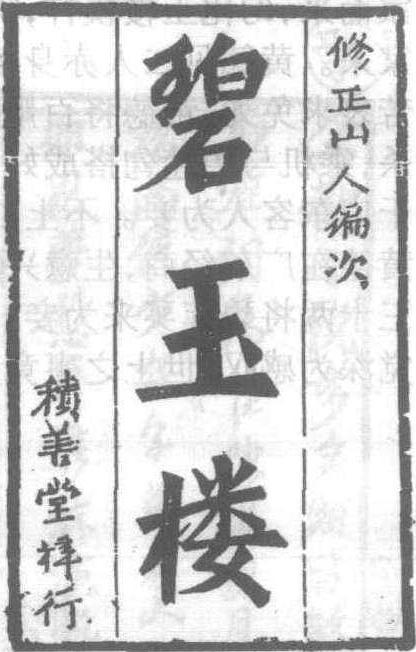 修正山人编次
碧玉楼
積善堂梓行